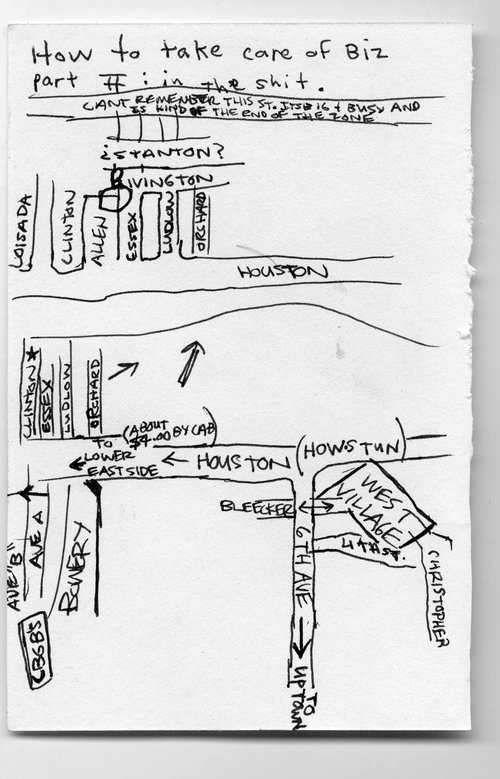 How to take care of Biz
part II : in the shit.
CANT REMEMBER THIS ST. ITS BIG + BUSY AND
IS KIND OF THE END OF THE ZONE
¿STANTON?
RIVINGTON
LOISADA
CLINTON
ALLEN
ESSEX
LUDLOW
ORCHARD
HOUSTON
CLINTON*
ESSEX
LUDLOW
ORCHARD
TO (ABOUT
$4.00 BY CAB)
LOWER
EAST SIDE
← HOUSTON (HOWSTUN)
BLEECKER
WEST
VILLAGE
4TH ST.
6TH AVE
CHRISTOPHER
AVE "B"
AVE A
BOWERY
CBGB'S
TO
UPTOWN